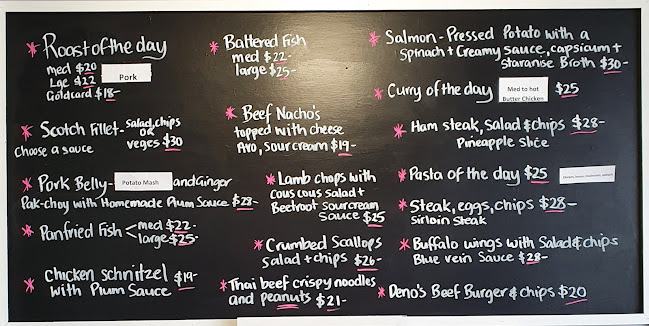 * Roast of the day
med $20
Lge $22
Goldcard $18-
Pork
* Scotch Fillet - salad, chips
OR
veges $30
Choose a sauce
* Pork Belly - Potato Mash and Ginger
Pak-choy with Homemade Plum Sauce $28-
* Panfried Fish < med $22-
large $25-
* Chicken Schnitzel $19-
with Plum Sauce
* Battered Fish
med $22-
large $25-
* Beef Nacho's
topped with cheese
Avo, sour cream $19-
* Lamb chops with
cous cous salad +
Beetroot sour cream
Sauce $25
* Crumbed Scallops
salad + chips $26-
* Thai beef crispy noodles
and peanuts $21-
* Salmon - Pressed Potato with a
Spinach + Creamy Sauce, capsicum +
staranise Broth $30-
* Curry of the day Med to hot $25
Butter Chicken
* Ham steak, Salad & chips $28-
Pineapple Slice
* Pasta of the day $25
* Steak, eggs, chips $28-
Sirloin Steak
* Buffalo wings with Salad & chips
Blue vein Sauce $28-
* Deno's Beef Burger & chips $20